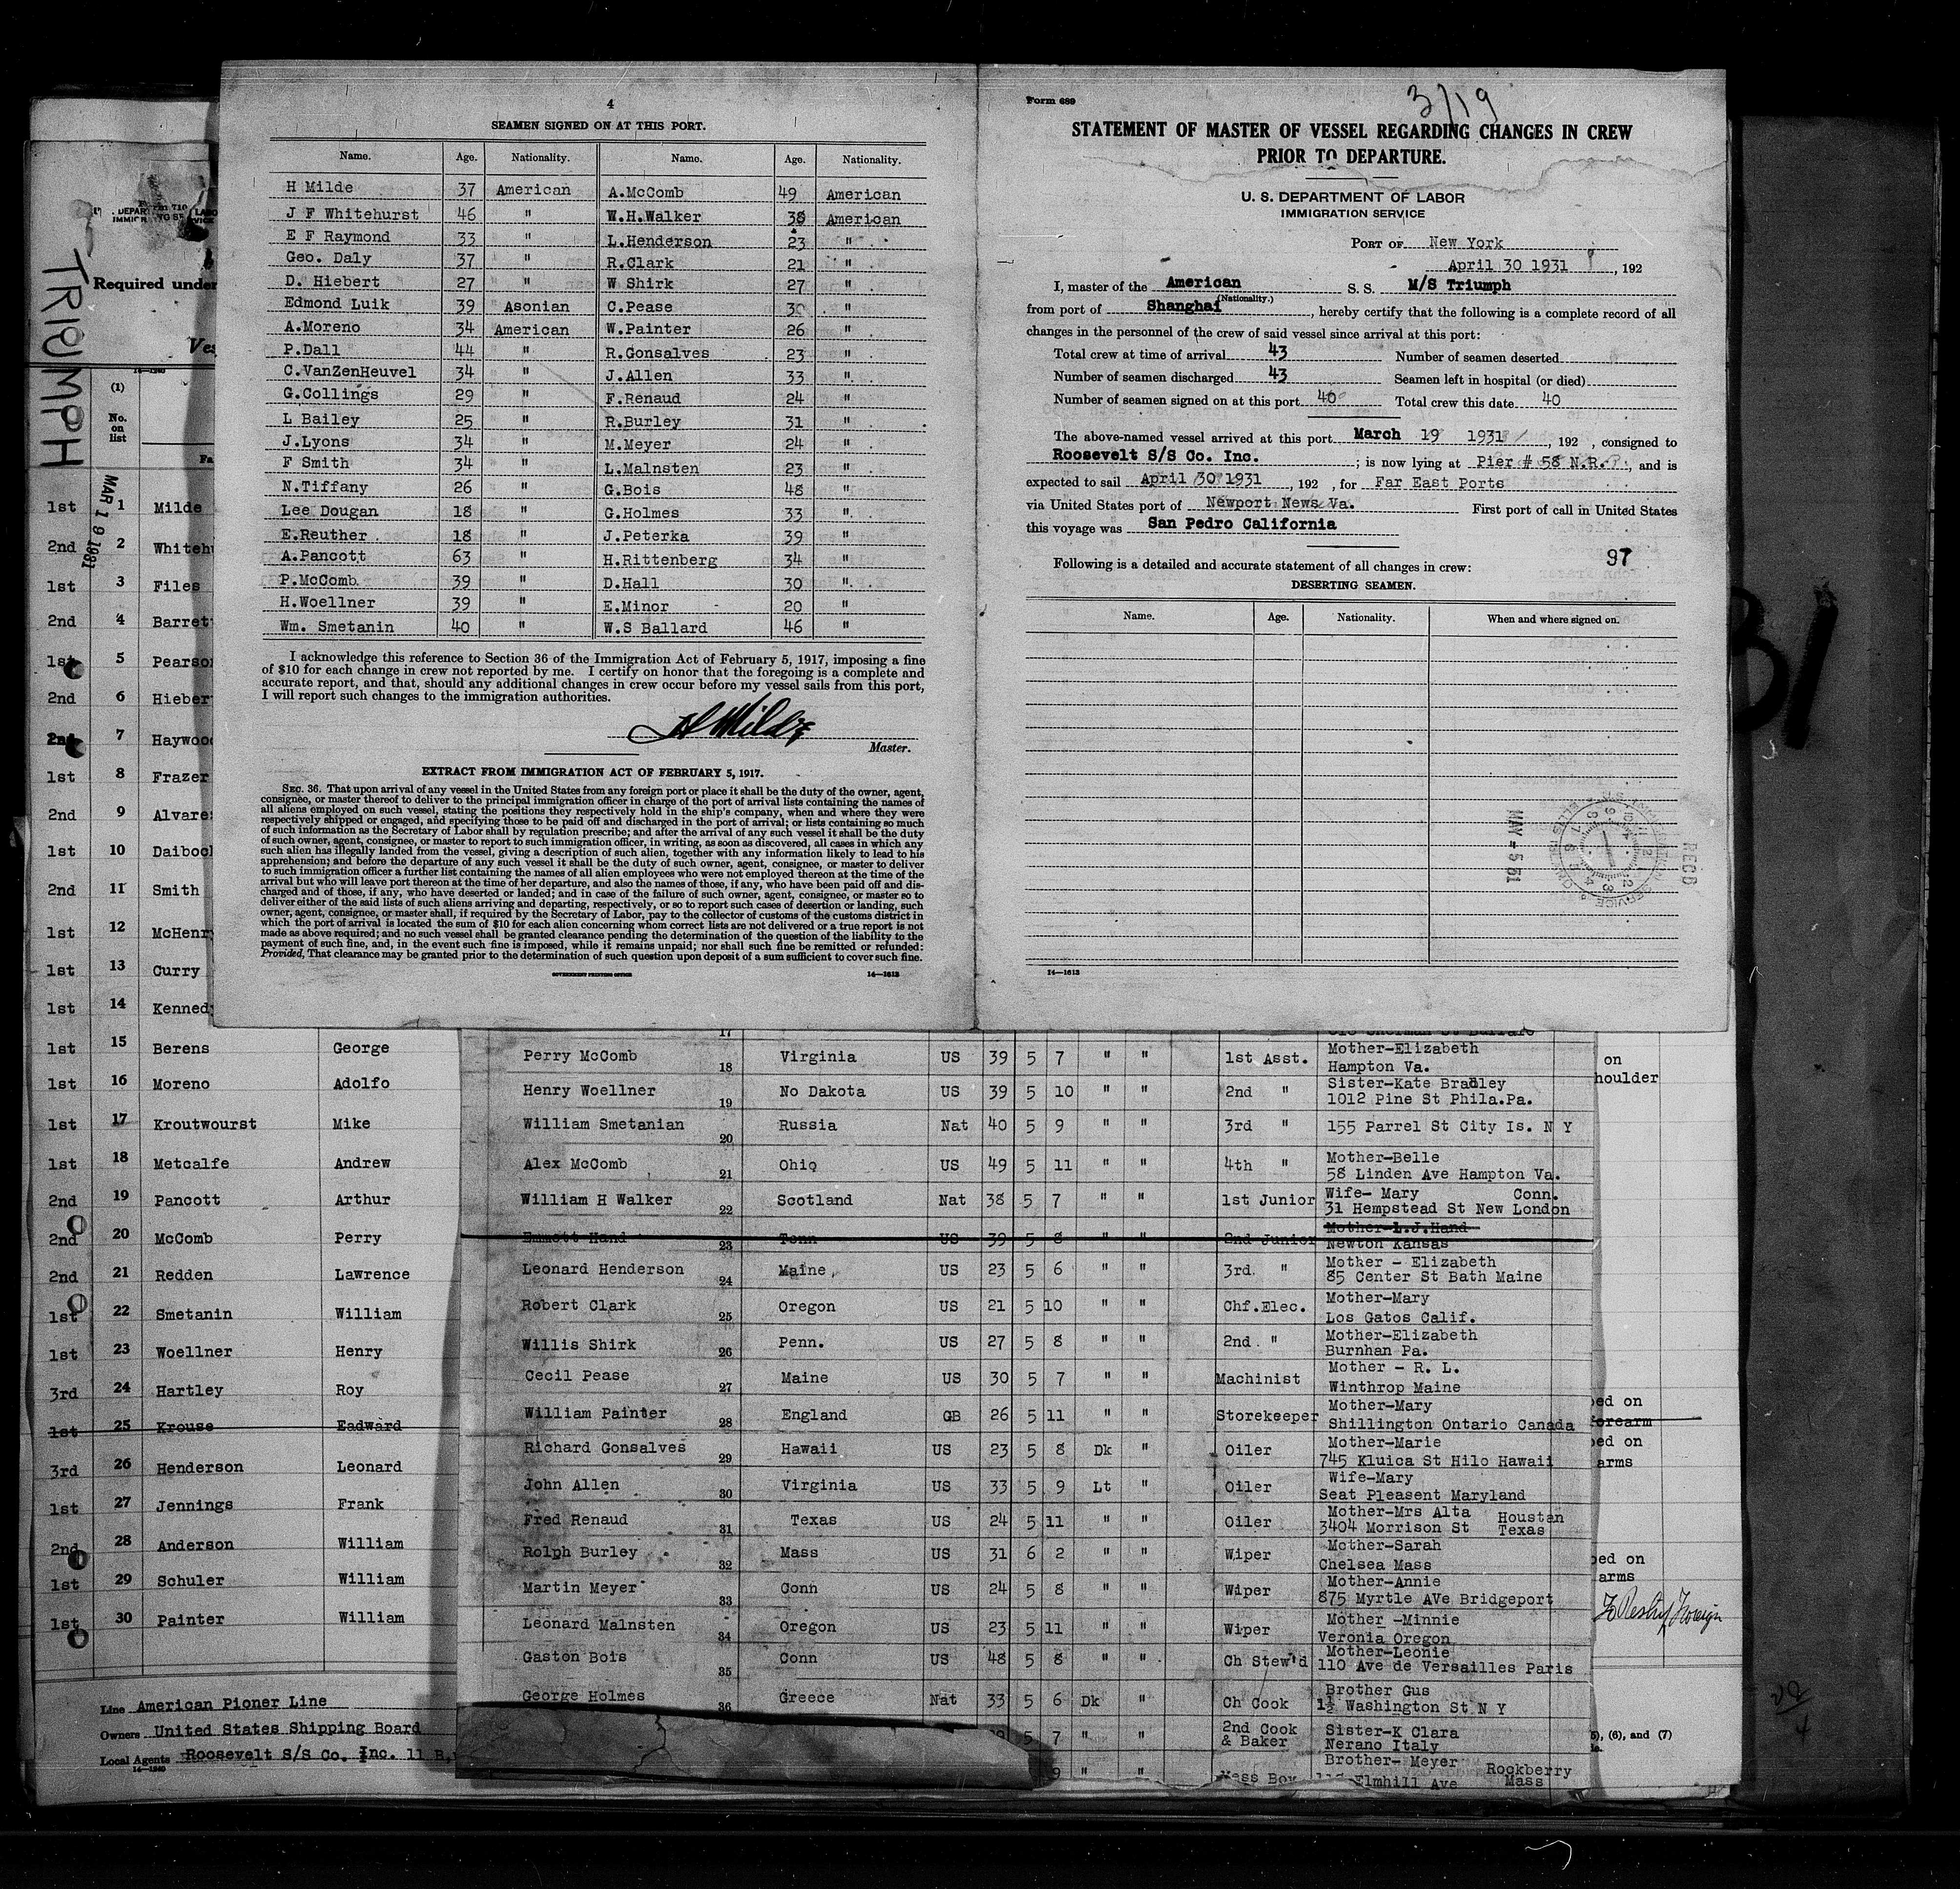 4
SEAMEN SIGNED ON AT THIS PORT.
Name. Age. Nationality. Name. Age. Nationality.
H Milde 37 American A.McComb 49 American
J F Whitehurst 46 " W.H.Walker 38 American
E F Raymond 33 " L.Henderson 23 "
Geo. Daly 37 " R.Clark 21 "
D. Hiebert 27 " W Shirk 27 "
Edmond Luik 39 Asonian C.Pease 30 "
A.Moreno 34 American W.Painter 26 "
P.Dall 44 " R.Gonsalves 23 "
C.VanZenHeuvel 34 " J.Allen 33 "
G.Collings 29 " F.Renaud 24 "
L Bailey 25 " R.Burley 31 "
J.Lyons 34 " M.Meyer 24 "
F Smith 34 " L.Malnsten 23 "
N.Tiffany 26 " G.Bois 48 "
Lee Dougan 18 " G.Holmes 33 "
E.Reuther 18 " J.Peterka 39 "
A.Pancott 63 " H.Rittenberg 34 "
P.McComb 39 " D.Hall 30 "
H.Woellner 39 " E.Minor 20 "
Wm. Smetanin 40 " W.S Ballard 46 "
I acknowledge this reference to Section 36 of the Immigration Act of February 5, 1917, imposing a fine
of $10 for each change in crew not reported by me. I certify on honor that the foregoing is a complete and
accurate report, and that, should any additional changes in crew occur before my vessel sails from this port,
I will report such changes to the immigration authorities.
H Milde
Master.
EXTRACT FROM IMMIGRATION ACT OF FEBRUARY 5, 1917.
SEC. 36. That upon arrival of any vessel in the United States from any foreign port or place it shall be the duty of the owner, agent,
consignee, or master thereof to deliver to the principal immigration officer in charge of the port of arrival lists containing the names of
all aliens employed on such vessel, stating the positions they respectively hold in the ship's company, when and where they were
respectively shipped or engaged, and specifying those to be paid off and discharged in the port of arrival; or lists containing so much
of such information as the Secretary of Labor shall by regulation prescribe; and after the arrival of any such vessel it shall be the duty
of such owner, agent, consignee, or master to report to such immigration officer, in writing, as soon as discovered, all cases in which any
such alien has illegally landed from the vessel, giving a description of such alien, together with any information likely to lead to his
apprehension; and before the departure of any such vessel it shall be the duty of such owner, agent, consignee, or master to deliver
to such immigration officer a further list containing the names of all alien employees who were not employed thereon at the time of the
arrival but who will leave port thereon at the time of her departure, and also the names of those, if any, who have been paid off and dis-
charged and of those, if any, who have deserted or landed; and in case of the failure of such owner, agent, consignee, or master so to
deliver either of the said lists of such aliens arriving and departing, respectively, or so to report such cases of desertion or landing, such
owner, agent, consignee, or master shall, if required by the Secretary of Labor, pay to the collector of customs of the customs district in
which the port of arrival is located the sum of $10 for each alien concerning whom correct lists are not delivered or a true report is not
made as above required; and no such vessel shall be granted clearance pending the determination of the question of the liability to the
payment of such fine, and, in the event such fine is imposed, while it remains unpaid; nor shall such fine be remitted or refunded:
Provided, That clearance may be granted prior to the determination of such question upon deposit of a sum sufficient to cover such fine.
GOVERNMENT PRINTING OFFICE 14—1613
Form 689
3/19
STATEMENT OF MASTER OF VESSEL REGARDING CHANGES IN CREW
PRIOR TO DEPARTURE.
U. S. DEPARTMENT OF LABOR
IMMIGRATION SERVICE
PORT OF New York
April 30 1931, 192
I, master of the American S. S. M/S Triumph
(Nationality.)
from port of Shanghai, hereby certify that the following is a complete record of all
changes in the personnel of the crew of said vessel since arrival at this port:
Total crew at time of arrival 43 Number of seamen deserted
Number of seamen discharged 43 Seamen left in hospital (or died)
Number of seamen signed on at this port 40 Total crew this date 40
The above-named vessel arrived at this port March 19 1931, 192 , consigned to
Roosevelt S/S Co. Inc. ; is now lying at Pier # 58 N.R., and is
expected to sail April 30 1931, 192 , for Far East Ports
via United States port of Newport News Va. First port of call in United States
this voyage was San Pedro California
97
Following is a detailed and accurate statement of all changes in crew:
DESERTING SEAMEN.
Name. Age. Nationality. When and where signed on.
RECD
MAY - 5 31
14—1613
TRIUMPH
Required under
Ves
14—1240
(1)
No. on list
Fa
MAR 19 1931
1st 1 Milde
2nd 2 Whiteh
1st 3 Files
2nd 4 Barret
1st 5 Pearso
2nd 6 Hieber
2nd 7 Haywoo
1st 8 Frazer
2nd 9 Alvare
1st 10 Daiboc
2nd 11 Smith
1st 12 McHenr
1st 13 Curry
1st 14 Kenned
1st 15 Berens George
1st 16 Moreno Adolfo
1st 17 Kroutwourst Mike
1st 18 Metcalfe Andrew
2nd 19 Pancott Arthur
2nd 20 McComb Perry
2nd 21 Redden Lawrence
1st 22 Smetanin William
1st 23 Woellner Henry
3rd 24 Hartley Roy
1st 25 Krouse Eadward
3rd 26 Henderson Leonard
1st 27 Jennings Frank
2nd 28 Anderson William
1st 29 Schuler William
1st 30 Painter William
Line American Pioner Line
Owners United States Shipping Board
Local Agents Roosevelt S/S Co. Inc. 11 B
14—1240
17
Perry McComb 18 Virginia US 39 5 7 " " 1st Asst. Mother-Elizabeth
Hampton Va.
Henry Woellner 19 No Dakota US 39 5 10 " " 2nd " Sister-Kate Bradley
1012 Pine St Phila.Pa.
William Smetanian 20 Russia Nat 40 5 9 " " 3rd " 155 Parrel St City Is. N Y
Alex McComb 21 Ohio US 49 5 11 " " 4th " Mother-Belle
58 Linden Ave Hampton Va.
William H Walker 22 Scotland Nat 38 5 7 " " 1st Junior Wife- Mary Conn.
31 Hempstead St New London
Emmott Hand 23 Tenn US 39 5 8 " " 2nd Junior Mother-L.J.Hand
Newton Kansas
Leonard Henderson 24 Maine US 23 5 6 " " 3rd. " Mother - Elizabeth
85 Center St Bath Maine
Robert Clark 25 Oregon US 21 5 10 " " Chf.Elec. Mother-Mary
Los Gatos Calif.
Willis Shirk 26 Penn. US 27 5 8 " " 2nd. " Mother-Elizabeth
Burnhan Pa.
Cecil Pease 27 Maine US 30 5 7 " " Machinist Mother - R. L.
Winthrop Maine
William Painter 28 England GB 26 5 11 " " Storekeeper Mother-Mary
Shillington Ontario Canada
Richard Gonsalves 29 Hawaii US 23 5 8 Dk " Oiler Mother-Marie
745 Kluica St Hilo Hawaii
John Allen 30 Virginia US 33 5 9 Lt " Oiler Wife-Mary
Seat Pleasent Maryland
Fred Renaud 31 Texas US 24 5 11 " " Oiler Mother-Mrs Alta Houstan
3404 Morrison St Texas
Rolph Burley 32 Mass US 31 6 2 " " Wiper Mother-Sarah
Chelsea Mass
Martin Meyer 33 Conn US 24 5 8 " " Wiper Mother-Annie
875 Myrtle AVe Bridgeport
Leonard Malnsten 34 Oregon US 23 5 11 " " Wiper Mother -Minnie
Veronia Oregon
Gaston Bois 35 Conn US 48 5 8 " " Ch Stew'd Mother-Leonie
110 Ave de Versailles Paris
George Holmes 36 Greece Nat 33 5 6 Dk " Ch Cook Brother Gus
1½ Washington St N Y
5 7 " " 2nd Cook & Baker Sister-K Clara
Nerano Italy
9 " " Mess Boy Brother- Meyer Rockberry
Elmhill Ave Mass
on
houlder
ped on
forearm
ped on
arms
ped on
arms
Foreign
(6), and (7)